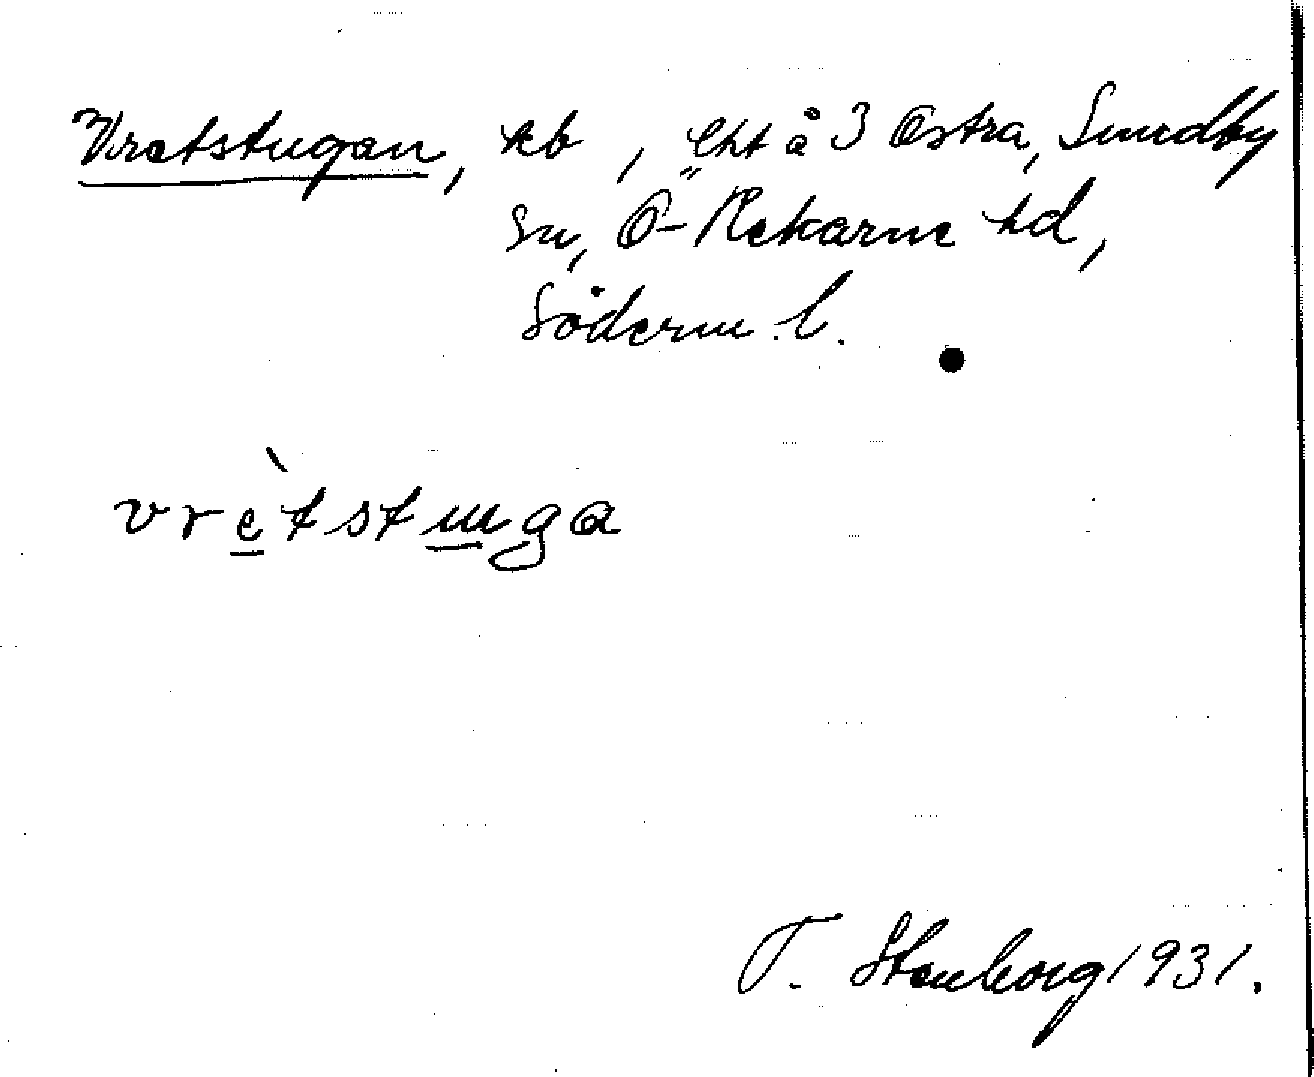 Vretstugan, tcb , "lht å 3 Östra, Sundby
sn, Ö-Rekarne hd,
Söderm. l.
vrètstuga
T. Stenborg 1931.